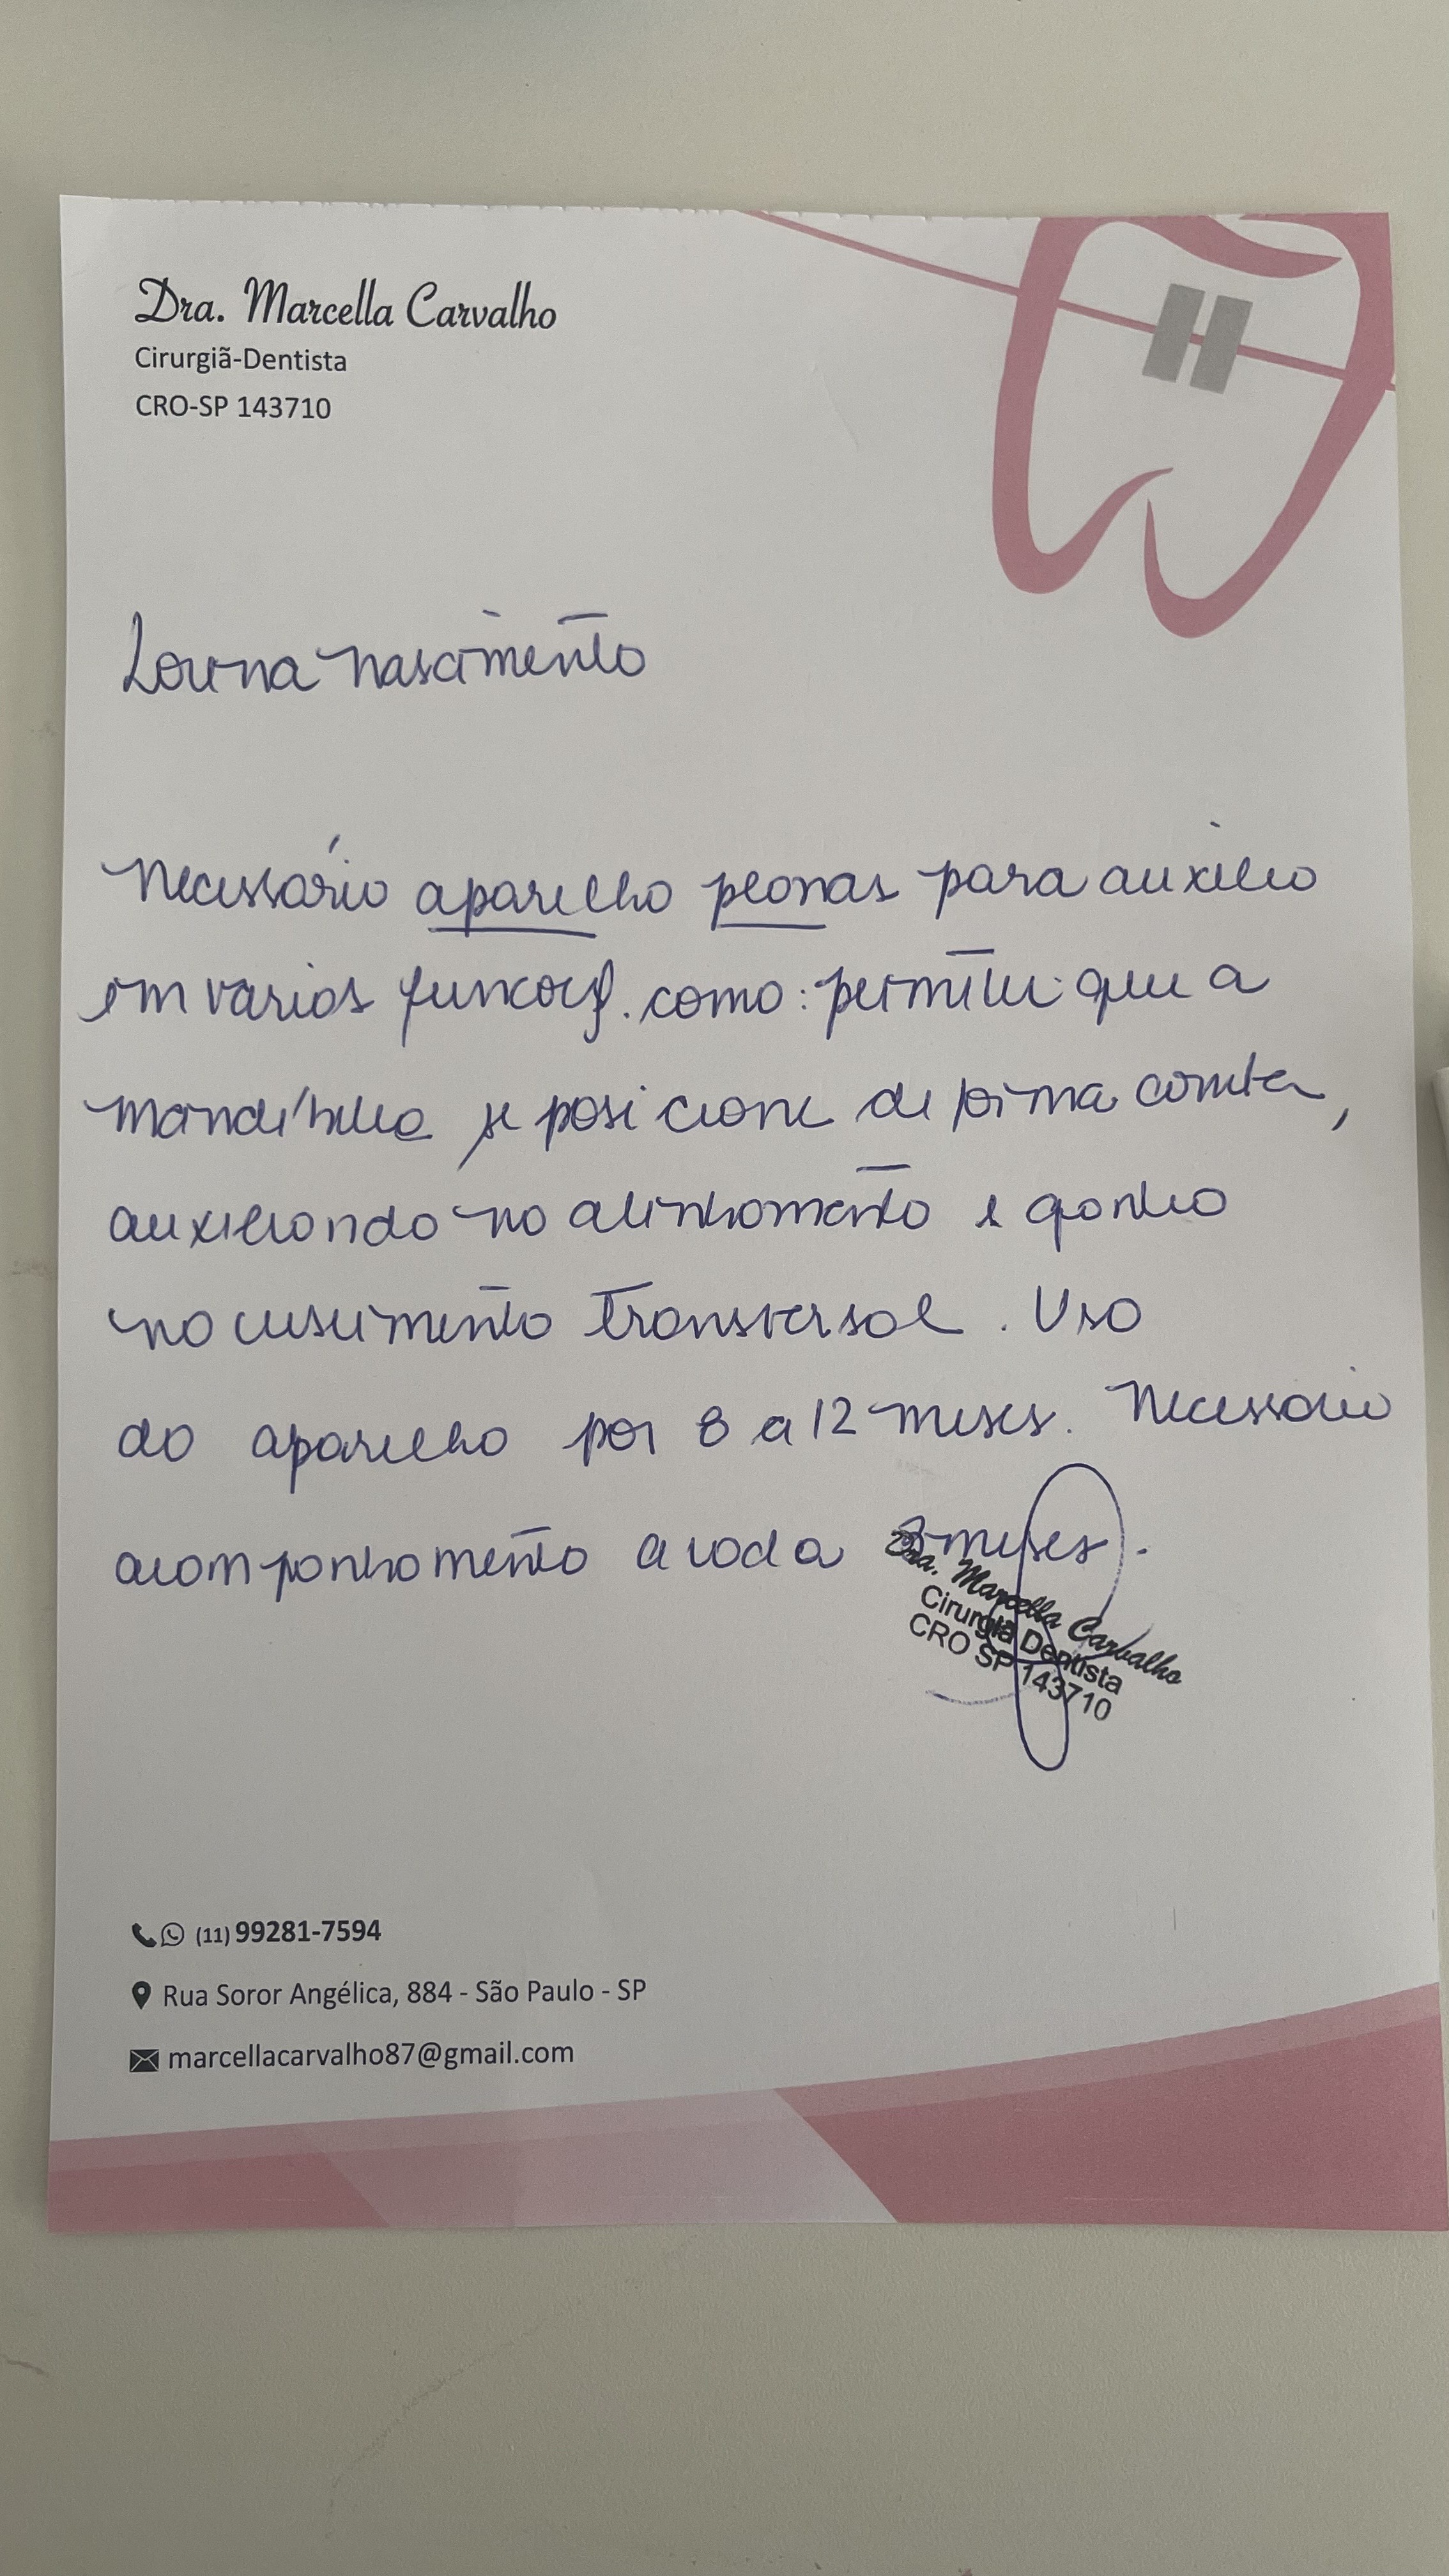 Dra. Marcella Carvalho
Cirurgiã-Dentista
CRO-SP 143710
Lorena Nascimento
Necessário aparelho planas para auxilio
em varios funcoes. como: permitir que a
mandíbula se posicione de forma correta,
auxiliando no alinhamento e ganho
no crescimento transversal. Uso
do aparelho por 8 a 12 meses. Necessario
acompanhamento a coda 3 meses.
Dra. Marcella Carvalho
Cirurgiã Dentista
CRO SP 143710
(11) 99281-7594
Rua Soror Angélica, 884 - São Paulo - SP
marcellacarvalho87@gmail.com